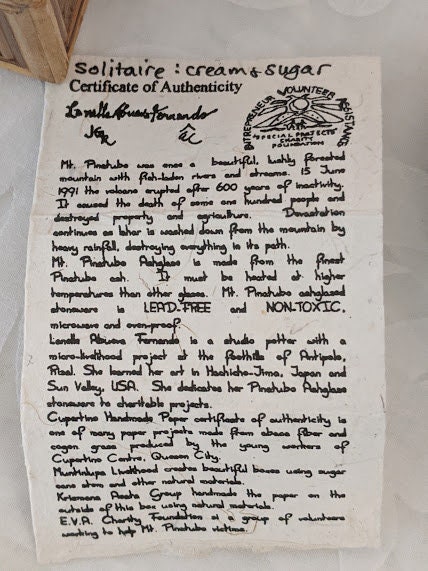 Solitaire : cream & sugar
Certificate of Authenticity
Lanelle Abueva Fernando
ENTREPRENEUR VOLUNTEER ASSISTANCE
"SPECIAL PROJECTS"
CHARITY
FOUNDATION
Mt. Pinatubo was once a beautiful, lushly forested
mountain with fish-laden rivers and streams. 15 June
1991 the volcano erupted after 600 years of inactivity.
It caused the death of some one hundred people and
destroyed property and agriculture. Devastation
continues as lahar is washed down from the mountain by
heavy rainfall, destroying everything in its path.
Mt. Pinatubo Ashglaze is made from the finest
Pinatubo ash. It must be heated at higher
temperatures than other glazes. Mt. Pinatubo ashglazed
stoneware is LEAD-FREE and NON-TOXIC,
microwave and oven-proof.
Lanelle Abueva Fernando is a studio potter with a
micro-livelihood project at the foothills of Antipolo,
Rizal. She learned her art in Hachicho-Jima, Japan and
Sun Valley, USA. She dedicates her Pinatubo Ashglaze
stoneware to charitable projects.
Cupertino Handmade Paper certificate of authenticity is
one of many paper projects made from abaca fiber and
cogon grass produced by the young workers of
Cupertino Centre, Quezon City.
Muntinlupa Livelihood creates beautiful boxes using sugar
cane stem and other natural materials.
Group handmade the paper on the
outside of this box using natural materials.
E.V.A. Charity Foundation is a group of volunteers
working to help Mt. Pinatubo victims.